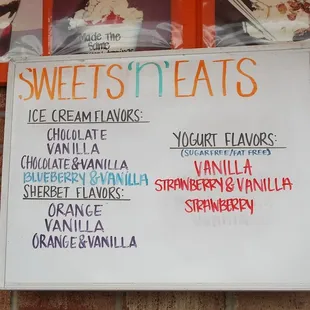 made the
same
SWEETS 'n' EATS
ICE CREAM FLAVORS:
CHOCOLATE
VANILLA
CHOCOLATE & VANILLA
BLUEBERRY & VANILLA
SHERBET FLAVORS:
ORANGE
VANILLA
ORANGE & VANILLA
YOGURT FLAVORS:
(SUGAR FREE/FAT FREE)
VANILLA
STRAWBERRY & VANILLA
STRAWBERRY